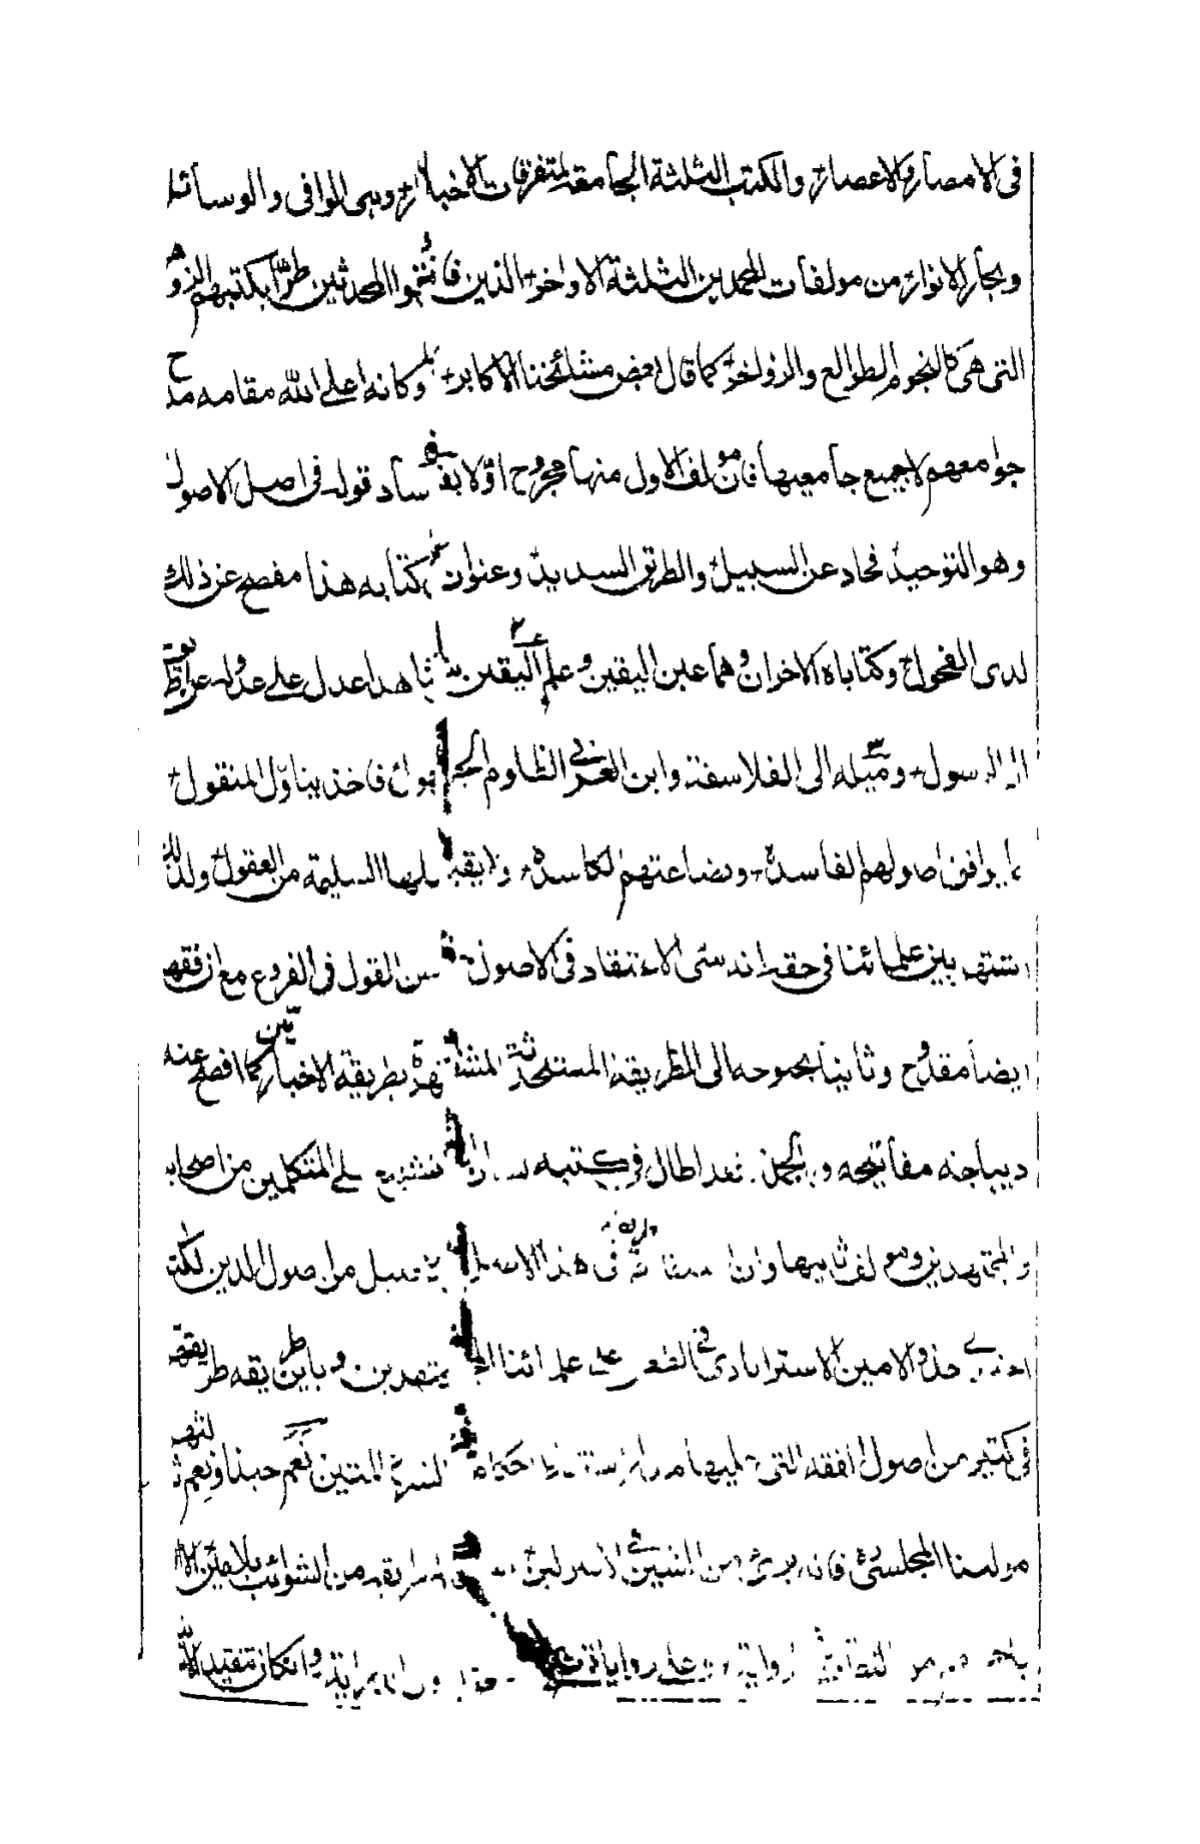 في الامصار والاعصار والكتب الثلثة الجامعة لمتفرقات الاخبار وهي الوافي والوسائل
وبحار الانوار من مولفات المحمدين الثلثة الاواخر الذين فاقوا المحدثين طرّا بكتبهم الزواهر
التي هي كالنجوم الطوالع والزواخر كما قال بعض مشائخنا الاكابر وكانه اعلى الله مقامه مدح
جوامعهم لا جميع جامعيها فان مولف الاول منها مجروح اولا بفساد قوله في اصل الاصول
وهو التوحيد فحاد عن السبيل والطريق السديد وعنوان كتابه هذا مفصح عن ذلك
لدى الفحول وكتاباه الاخران وهما عين اليقين وعلم اليقين شاهدا عدل على عدوله عن طريقة
ال الرسول وميله الى الفلاسفة وابن العربي الظلوم الجهول فاخذ بتاول المنقول
بما يوافق اصولهم الفاسدة وبضاعتهم الكاسدة ولا يقبلها السليمة من العقول ولذلك
اشتهر بين علمائنا في حقه انه سيئ الاعتقاد في الاصول حسن القول في الفروع مع ان فقهه
ايضا مقدوح وثانيا بجنوحه الى الطريقة المستحدثة المشتهرة بطريقة الاخباريين كما افصح عنه
ديباجة مفاتيحه وبالجملة فقد اطال في كتبه التشنيع على المتكلمين من اصحابه
والمجتهدين ومولف ثانيها وان في هذا من اصول الدين لكنه
احتذى حذو الامين الاسترابادي في الطعن على علمائنا المجتهدين وباين طريقه طريقتهم
في كثير من اصول الفقه التي عليها مدار استنباط احكام الشرع المتين نعم حبذا ونعم ثالثهم
مولينا المجلسي فانه بريء من الشين الطريقة من الشوائب بلا مين
من رواية على روايات وان كان